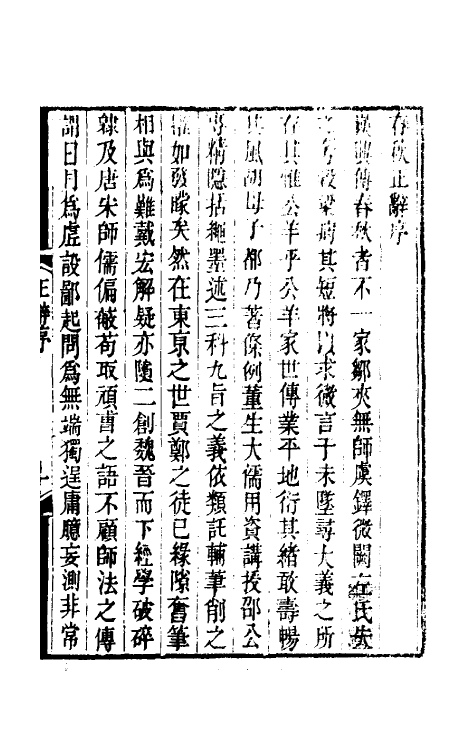 春秋正辭序
漢興傳春秋者不一家鄒夾無師虞鐸微闕左氏失
之夸穀梁病其短將以求微言于未墜尋大義之所
存其惟公羊乎公羊家世傳業平地衍其緒敢壽暢
其風胡母子都乃著條例董生大儒用資講授邵公
專精隱括繩墨述三科九旨之義依類託輔筆削之
如發矇矣然在東京之世賈鄭之徒已緣隙奮筆
相與為難戴宏解疑亦隨二創魏晉而下經學破碎
及唐宋師儒偏蔽苟取頑曹之語不顧師法之傳
謂日月為虛設鄙起問為無端獨逞庸臆妄測非常
正辭序